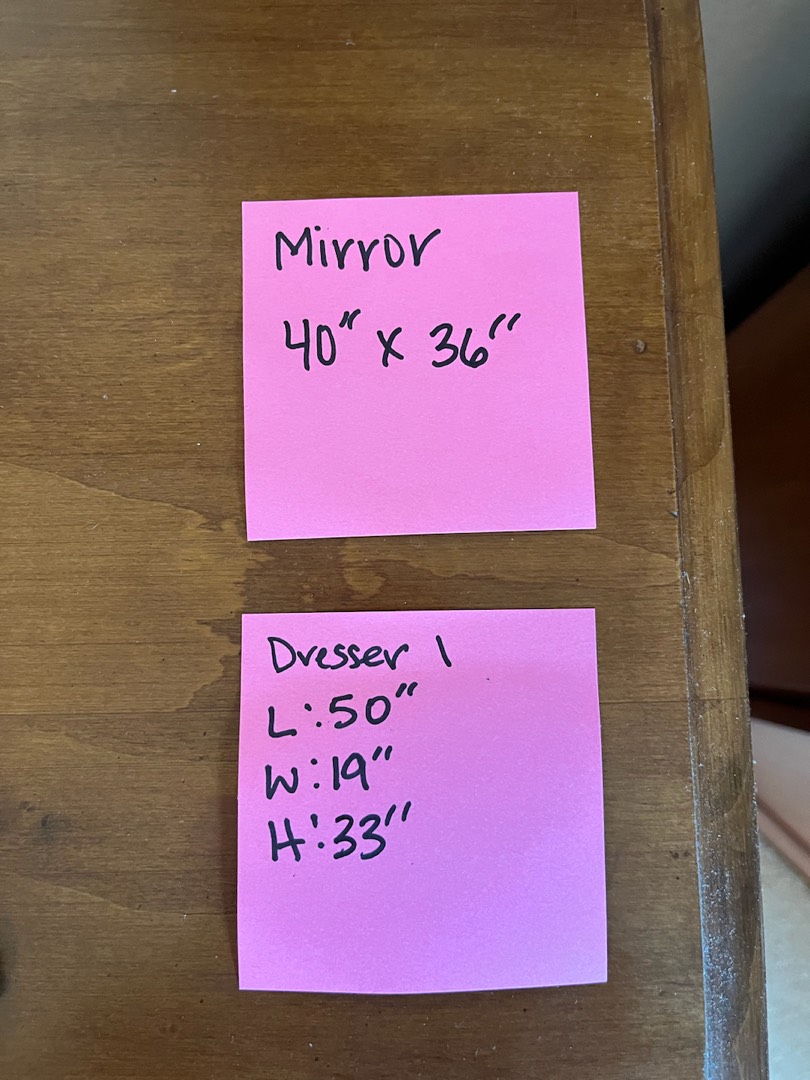 Mirror
40" x 36"
Dresser 1
L: 50"
W: 19"
H: 33"